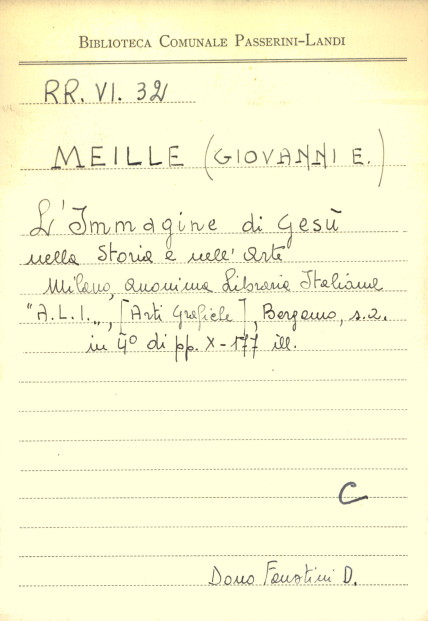 BIBLIOTECA COMUNALE PASSERINI-LANDI
RR. VI. 32
MEILLE (GIOVANNI E.)
L'Immagine di Gesù
nella Storia e nell'arte
Milano, anonima Libraria Italiana
"A.L.I.„, [Arti Grafiche], Bergamo, s.a.
in 4º di pp. X-177 ill.
C
Dono Faustini D.